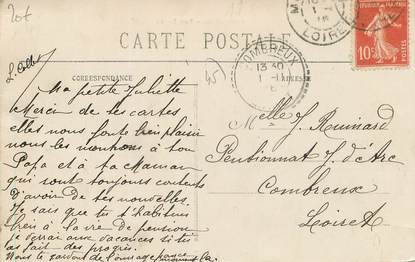 20f
CARTE POSTALE
CORRESPONDANCE
45
COMBREUX
13 30
LOIRET
10
Ma petite Juliette
Merci de tes cartes
elles nous font bien plaisir
nous les montrons à ton
Papa et à ta Maman
qui sont toujours contents
d'avoir de tes nouvelles.
Je sais que tu t'habitues
bien à la vie de pension
je verrai aux vacances si tu
as fait des progrès.
Nous te
Melle J. Ruinard
Pentionnat J. d'Arc
Combreux
Loiret